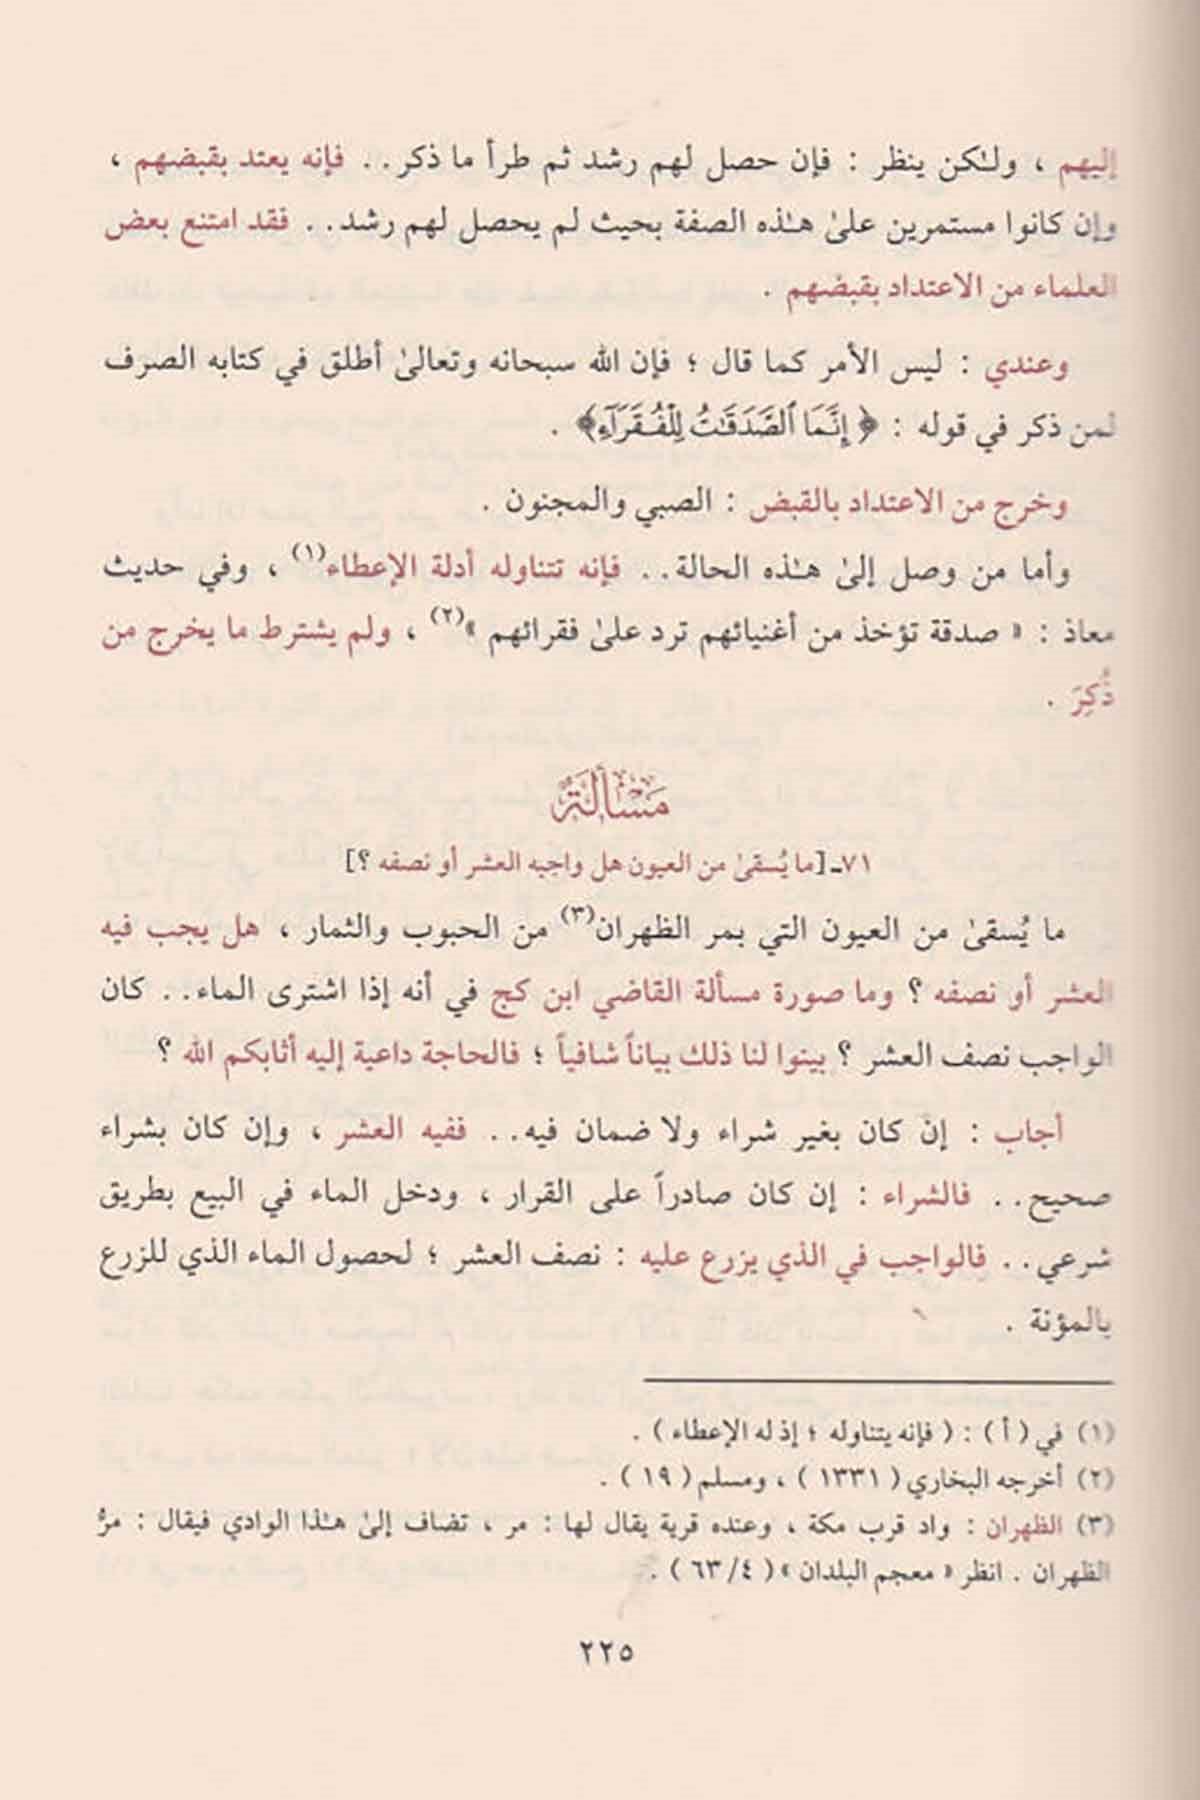 إليهم ، ولٰكن ينظر : فإن حصل لهم رشد ثم طرأ ما ذكر.. فإنه يعتد بقبضهم ،
وإن كانوا مستمرين علىٰ هٰذه الصفة بحيث لم يحصل لهم رشد.. فقد امتنع بعض
العلماء من الاعتداد بقبضهم .
وعندي : ليس الأمر كما قال ؛ فإن الله سبحانه وتعالىٰ أطلق في كتابه الصرف
لمن ذكر في قوله : ﴿ إِنَّمَا ٱلصَّدَقَٰتُ لِلْفُقَرَآءِ﴾ .
وخرج من الاعتداد بالقبض : الصبي والمجنون .
وأما من وصل إلىٰ هٰذه الحالة.. فإنه تتناوله أدلة الإعطاء(١) ، وفي حديث
معاذ : « صدقة تؤخذ من أغنيائهم ترد علىٰ فقرائهم »(٢) ، ولم يشترط ما يخرج من
ذُكِرَ .
مَسْأَلَةٌ
٧١ـ [ما يُسقىٰ من العيون هل واجبه العشر أو نصفه ؟]
ما يُسقىٰ من العيون التي بمر الظهران(٣) من الحبوب والثمار ، هل يجب فيه
العشر أو نصفه ؟ وما صورة مسألة القاضي ابن كج في أنه إذا اشترى الماء.. كان
الواجب نصف العشر ؟ بينوا لنا ذلك بياناً شافياً ؛ فالحاجة داعية إليه أثابكم الله ؟
أجاب : إن كان بغير شراء ولا ضمان فيه.. ففيه العشر ، وإن كان بشراء
صحيح.. فالشراء : إن كان صادراً على القرار ، ودخل الماء في البيع بطريق
شرعي.. فالواجب في الذي يزرع عليه : نصف العشر ؛ لحصول الماء الذي للزرع
بالمؤنة .
(١) في ( أ ) : ( فإنه يتناوله ؛ إذ له الإعطاء ) .
(٢) أخرجه البخاري ( ١٣٣١ ) ، ومسلم ( ١٩ ) .
(٣) الظهران : واد قرب مكة ، وعنده قرية يقال لها : مر ، تضاف إلىٰ هٰذا الوادي فيقال : مرُّ
الظهران . انظر « معجم البلدان » ( ٤/ ٦٣ ) .
٢٢٥